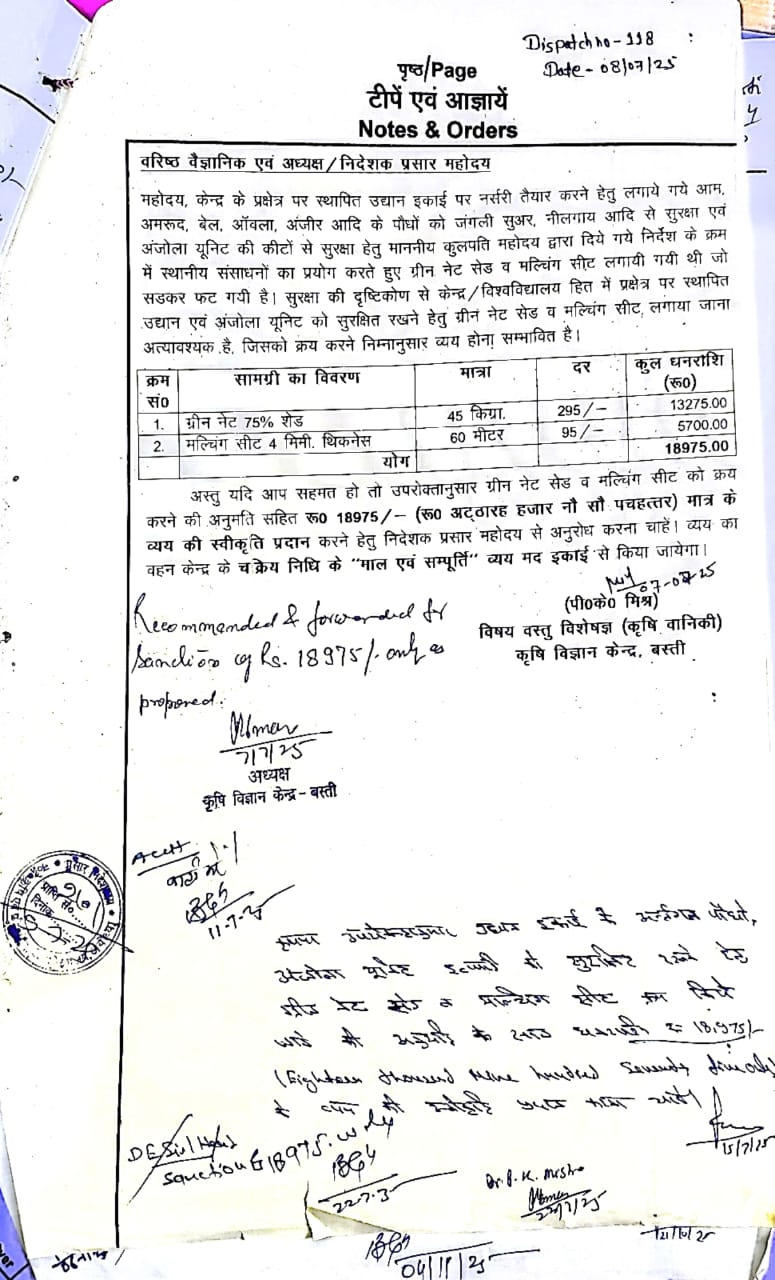 Dispatch no - 118
Date - 08/07/25
पृष्ठ/Page
टीपें एवं आज्ञायें
Notes & Orders
वरिष्ठ वैज्ञानिक एवं अध्यक्ष/निदेशक प्रसार महोदय
महोदय, केन्द्र के प्रक्षेत्र पर स्थापित उद्यान इकाई पर नर्सरी तैयार करने हेतु लगाये गये आम,
अमरूद, बेल, ऑवला, अंजीर आदि के पौधों को जंगली सुअर, नीलगाय आदि से सुरक्षा एवं
अंजोला यूनिट की कीटों से सुरक्षा हेतु माननीय कुलपति महोदय द्वारा दिये गये निर्देश के क्रम
में स्थानीय संसाधनों का प्रयोग करते हुए ग्रीन नेट सेड व मल्चिंग सीट लगायी गयी थी जो
सडकर फट गयी है। सुरक्षा की दृष्टिकोण से केन्द्र/विश्वविद्यालय हित में प्रक्षेत्र पर स्थापित
उद्यान एवं अंजोला यूनिट को सुरक्षित रखने हेतु ग्रीन नेट सेड व मल्चिंग सीट लगाया जाना
अत्यावश्यक है, जिसको क्रय करने निम्नानुसार व्यय होना सम्भावित है।
क्रम सं० सामग्री का विवरण मात्रा दर कुल धनराशि (रू0)
1. ग्रीन नेट 75% शेड 45 किग्रा. 295/- 13275.00
2. मल्चिंग सीट 4 मिमी. थिकनेस 60 मीटर 95/- 5700.00
योग 18975.00
अस्तु यदि आप सहमत हो तो उपरोक्तानुसार ग्रीन नेट सेड व मल्चिंग सीट को क्रय
करने की अनुमति सहित रू0 18975/- (रू0 अट्ठारह हजार नौ सौ पचहत्तर) मात्र के
व्यय की स्वीकृति प्रदान करने हेतु निदेशक प्रसार महोदय से अनुरोध करना चाहें। व्यय का
वहन केन्द्र के चक्रिय निधि के "माल एवं सम्पूर्ति" व्यय मद इकाई से किया जायेगा।
07-07-25
(पी०के० मिश्र)
विषय वस्तु विशेषज्ञ (कृषि वानिकी)
कृषि विज्ञान केन्द्र, बस्ती
Recommended & forwarded for
Sanction of Rs. 18975/- only as
proposed.
7/7/25
अध्यक्ष
कृषि विज्ञान केन्द्र - बस्ती
Acctt
11-7-25
प्रसार निदेशालय
प्राप्ति सं०
दिनांक
कृपया उद्यान इकाई के अन्तर्गत पौधों,
अजोला यूनिट को सुरक्षित रखने हेतु
ग्रीन नेट सेड व मल्चिंग सीट क्रय किये
जाने की अनुमति के साथ धनराशि रू 18,975/-
(Eighteen thousand Nine hundred Seventy five only)
के व्यय की स्वीकृति प्रदान करना चाहें।
15/7/25
Sanction 18975
22.7.25
Dr. P. K. Mishra
22/7/25
04/11/25